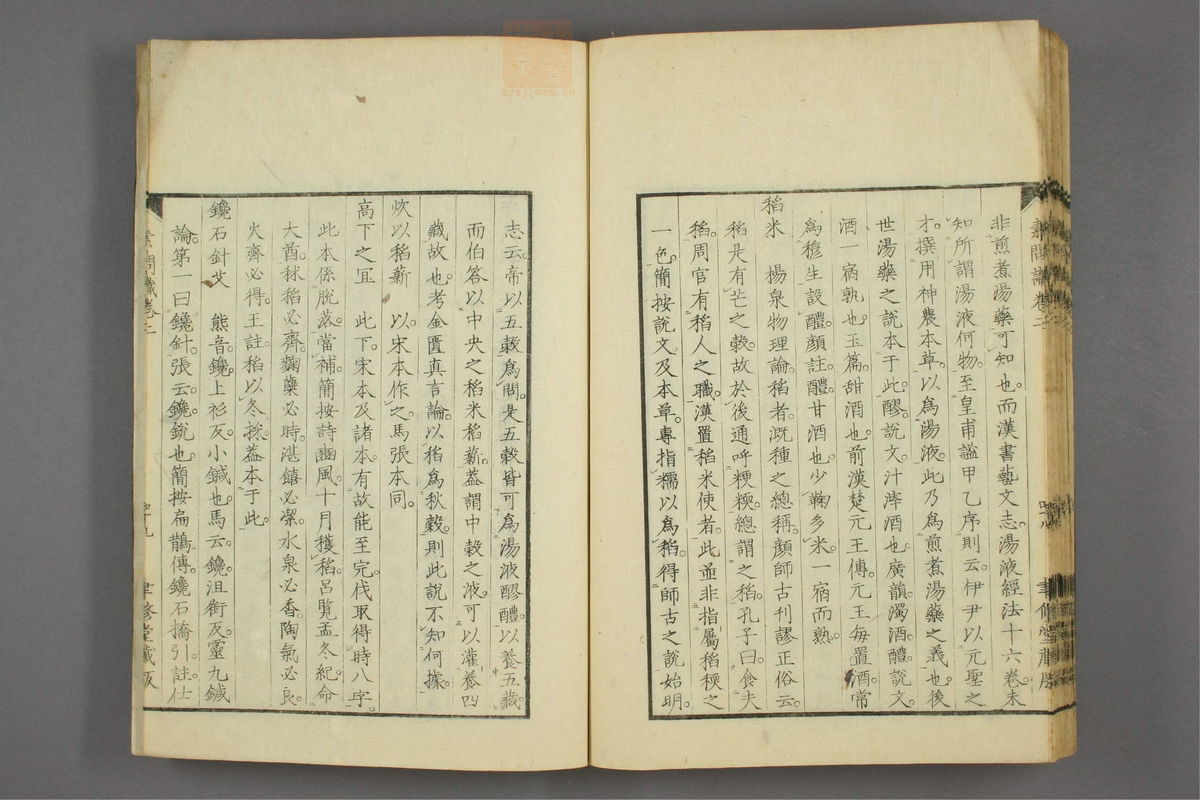 非煎煮湯藥可知也。而漢書藝文志湯液經法十六卷。未
知所謂湯液何物。至皇甫謐甲乙序則云。伊尹以元聖之
才。撰用神農本草。以爲湯液。此乃爲煎煮湯藥之義也。後
世湯藥之說本于此。醪。說文。汁滓酒也。廣韻。濁酒。醴。說文。
酒一宿孰也。玉篇。甜酒也。前漢楚元王傳。元王每置酒。常
爲穆生設醴。顔註。醴甘酒也。少麴多米。一宿而熟。
稻米　楊泉物理論。稻者。溉種之總稱。顔師古刊謬正俗云。
稻是有芒之穀。故於後通呼粳糯。總謂之稻。孔子曰。食夫
稻。周官有稻人之職。漢置稻米使者。此並非指屬稻穤之
一色。簡按說文及本草。專指糯以爲稻。得師古之說始明。
素問識卷二
志云。帝以五穀爲問。是五穀皆可爲湯液醪醴。以養五藏。
而伯答以中央之稻米稻薪。蓋謂中穀之液。可以灌養四
藏故也。考金匱真言論。以稻爲秋穀。則此說不知何據。
炊以稻薪　以。宋本作之。馬張本同。
高下之宜　此下。宋本及諸本。有故能至完伐取得時八字。
此本係脫落。當補。簡按詩豳風。十月穫稻。呂覽孟冬紀。命
大酋。秫稻必齊。麴糵必時。湛饎必潔。水泉必香。陶氣必良。
火齊必得。王註。稻以冬採。蓋本于此。
鑱石針艾　熊音。鑱。上衫反。小鍼也。馬云。鑱。沮銜反。靈九鍼
論。第一曰鑱針。張云。鑱。銳也。簡按扁鵲傳。鑱石撟引。註。仕
素問識卷二
四十九
聿修堂藏版